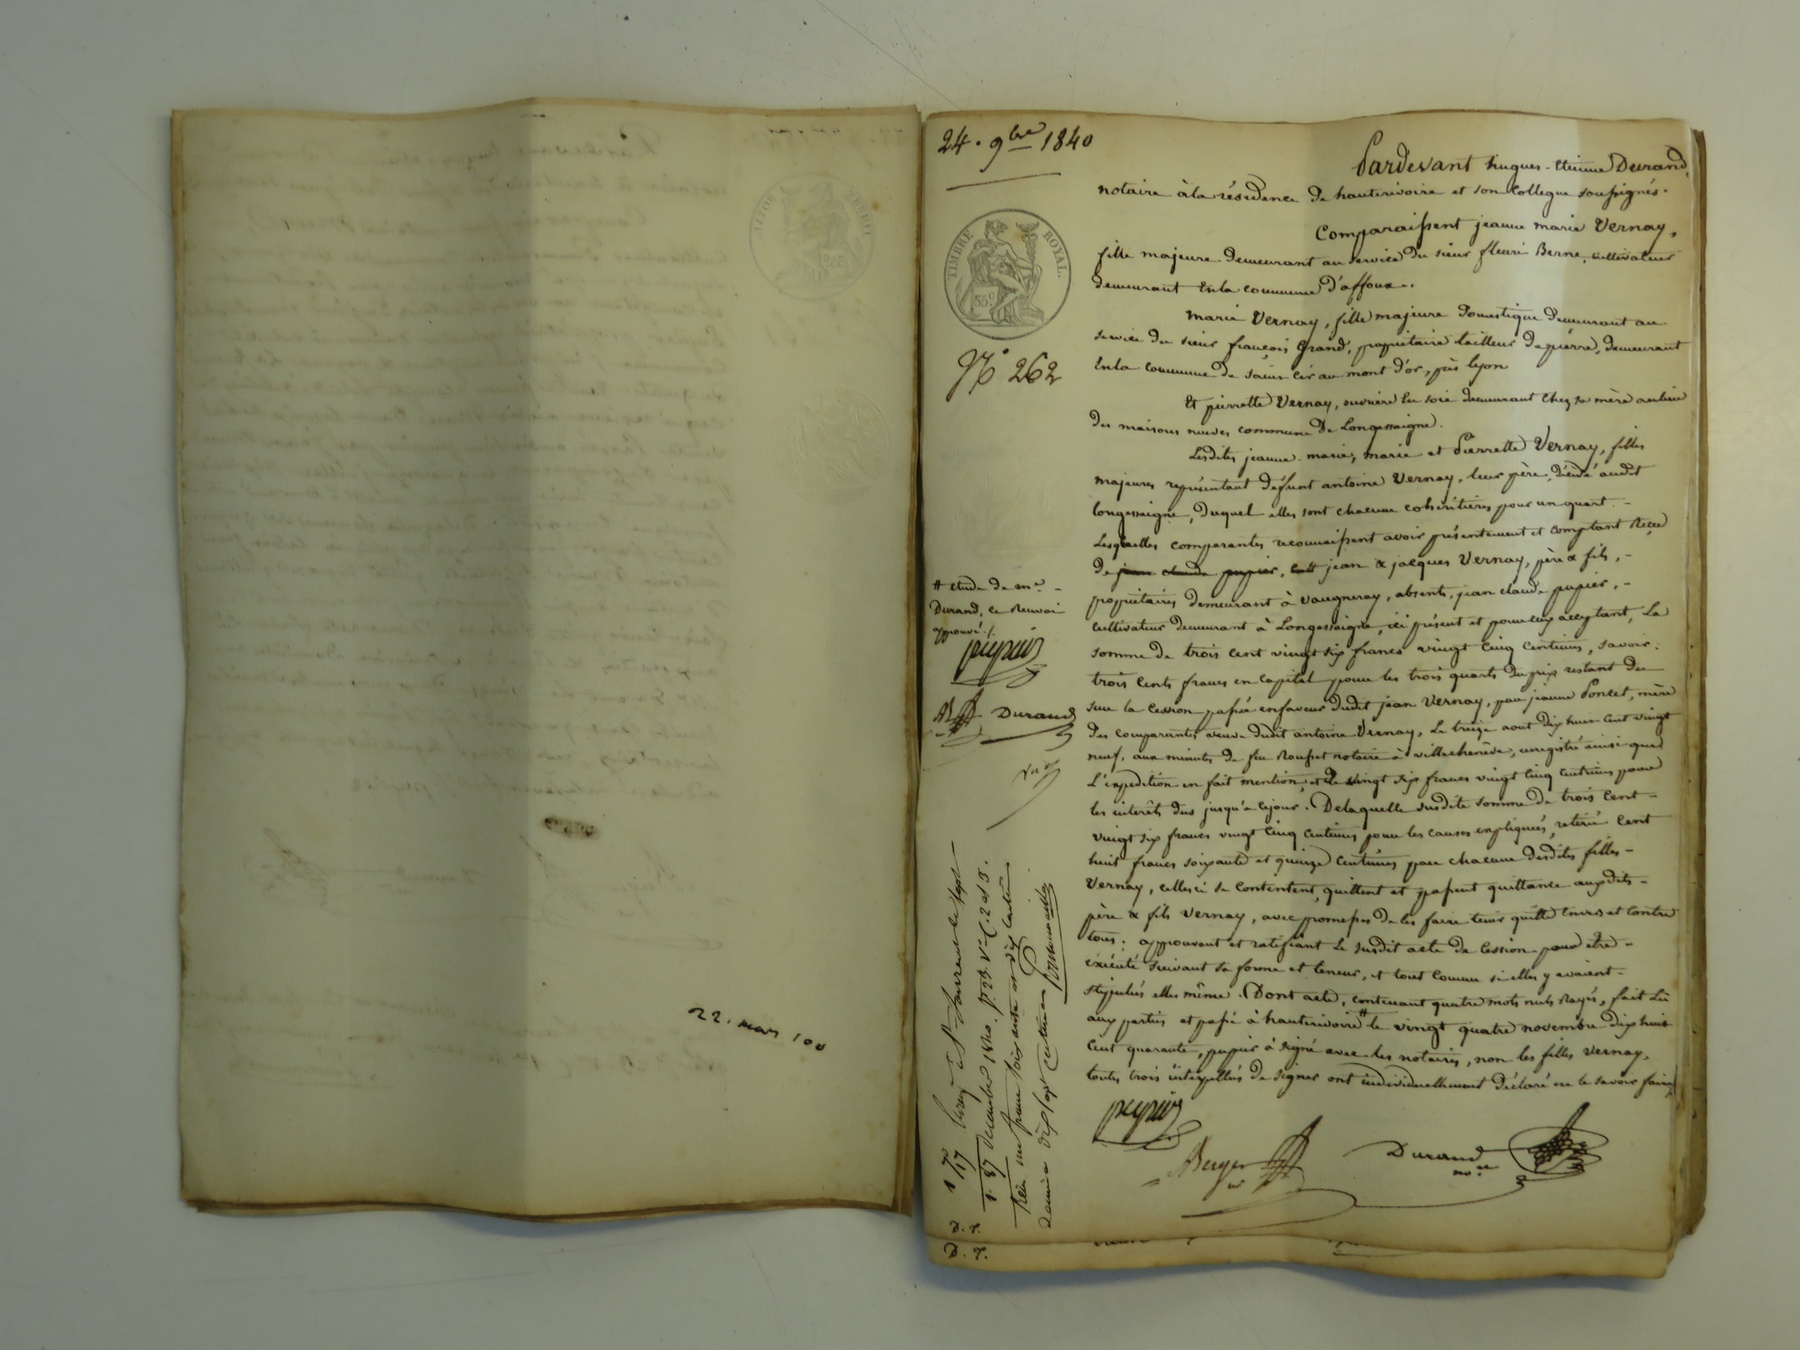 22. mars 100
24. 9bre 1840
TIMBRE ROYAL.
35c
No 262
Pardevant hugues-étienne Durand,
notaire à la résidence de hauterivoire et son collegue soussignés.
Comparaissent jeanne marie Vernay,
fille majeure demeurant au service du sieur fleuri Berne, cultivateur
demeurant en la commune d'affoux.
marie Vernay, fille majeure domestique demeurant au
service du sieur françois Grand, propriétaire tailleur de pierre, demeurant
en la commune de saint cir au mont d'or, près lyon
Et pierrette Vernay, ouvrière en soie demeurant chez sa mère au lieu
des maisons neuves commune de Longessaigne.
Lesdites jeanne marie, marie et Pierrette Vernay, filles
majeures représentant défunt antoine Vernay, leur père, décédé audit
longessaigne, duquel elles sont chacune cohéritières pour un quart.-
Lesquelles comparantes reconnaissent avoir présentement et comptant reçu
de jean claude pupier, cult jean & jacques Vernay, père & fils,-
propriétaires demeurant à Vaugneray, absents, jean claude pupier,-
cultivateur demeurant à Longessaigne, ici présent et pour eux acceptant, La
somme de trois cent vingt six francs vingt cinq centimes, savoir:
trois cents francs en capital pour les trois quarts du prix restant du
sur la cession passée en faveur dudit jean Vernay, par jeanne Poncet, mère
des comparantes veuve dudit antoine Vernay, Le treize aout dix huit cent vingt
neuf, aux minutes de feu Rousset notaire à villechenève, enregistré ainsi que
L'expédition en fait mention, et de vingt six francs vingt cinq centimes pour
les intérêts dus jusqu'a ce jour. De laquelle susdite somme de trois cent-
vingt six francs vingt cinq centimes pour les causes expliquées, retiré cent
huit francs soixante et quinze centimes par chacune desdites filles-
Vernay, celles ci se contentent, quittent et passent quittance auxdits-
père & fils Vernay, avec promesse de les faire tenir quitte envers et contre
tous; approuvant et ratifiant Le susdit acte de cession pour être-
exécuté suivant sa forme et teneur, et tout comme si elles y avaient-
stipulés elles même. Dont acte, contenant quatre mots nuls rayés, fait lu
aux parties et passé à hauterivoire # le vingt quatre novembre dix huit
cent quarante, pupier à signé avec les notaires, non les filles Vernay,
toutes trois interpellés de signer ont individuellement déclaré ne le savoir faire
# etude de me -
Durand, ce renvoi
approuvé./.
pupier
Durand
pupier
Berger
Durand
nore
décembre 1840. fo 23. Vo C. 2 et 3.
Reçu un franc soixante et dix centimes
D. P.
D. P.